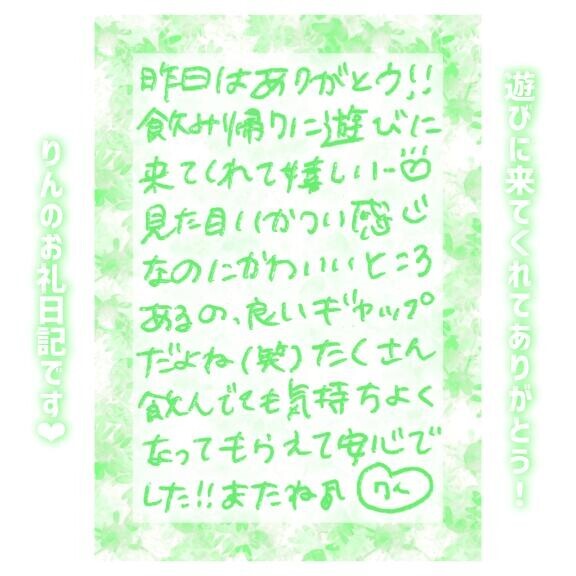 遊びに来てくれてありがとう！
昨日はありがとウ!!
飲み帰りに遊びに
来てくれて嬉しい
見た目いかつい感じ
なのにかわいいところ
あるの、良いギャップ
だよね(笑)たくさん
飲んでても気持ちよく
なってもらえて安心で
した!!またね♪
りんのお礼日記です❤